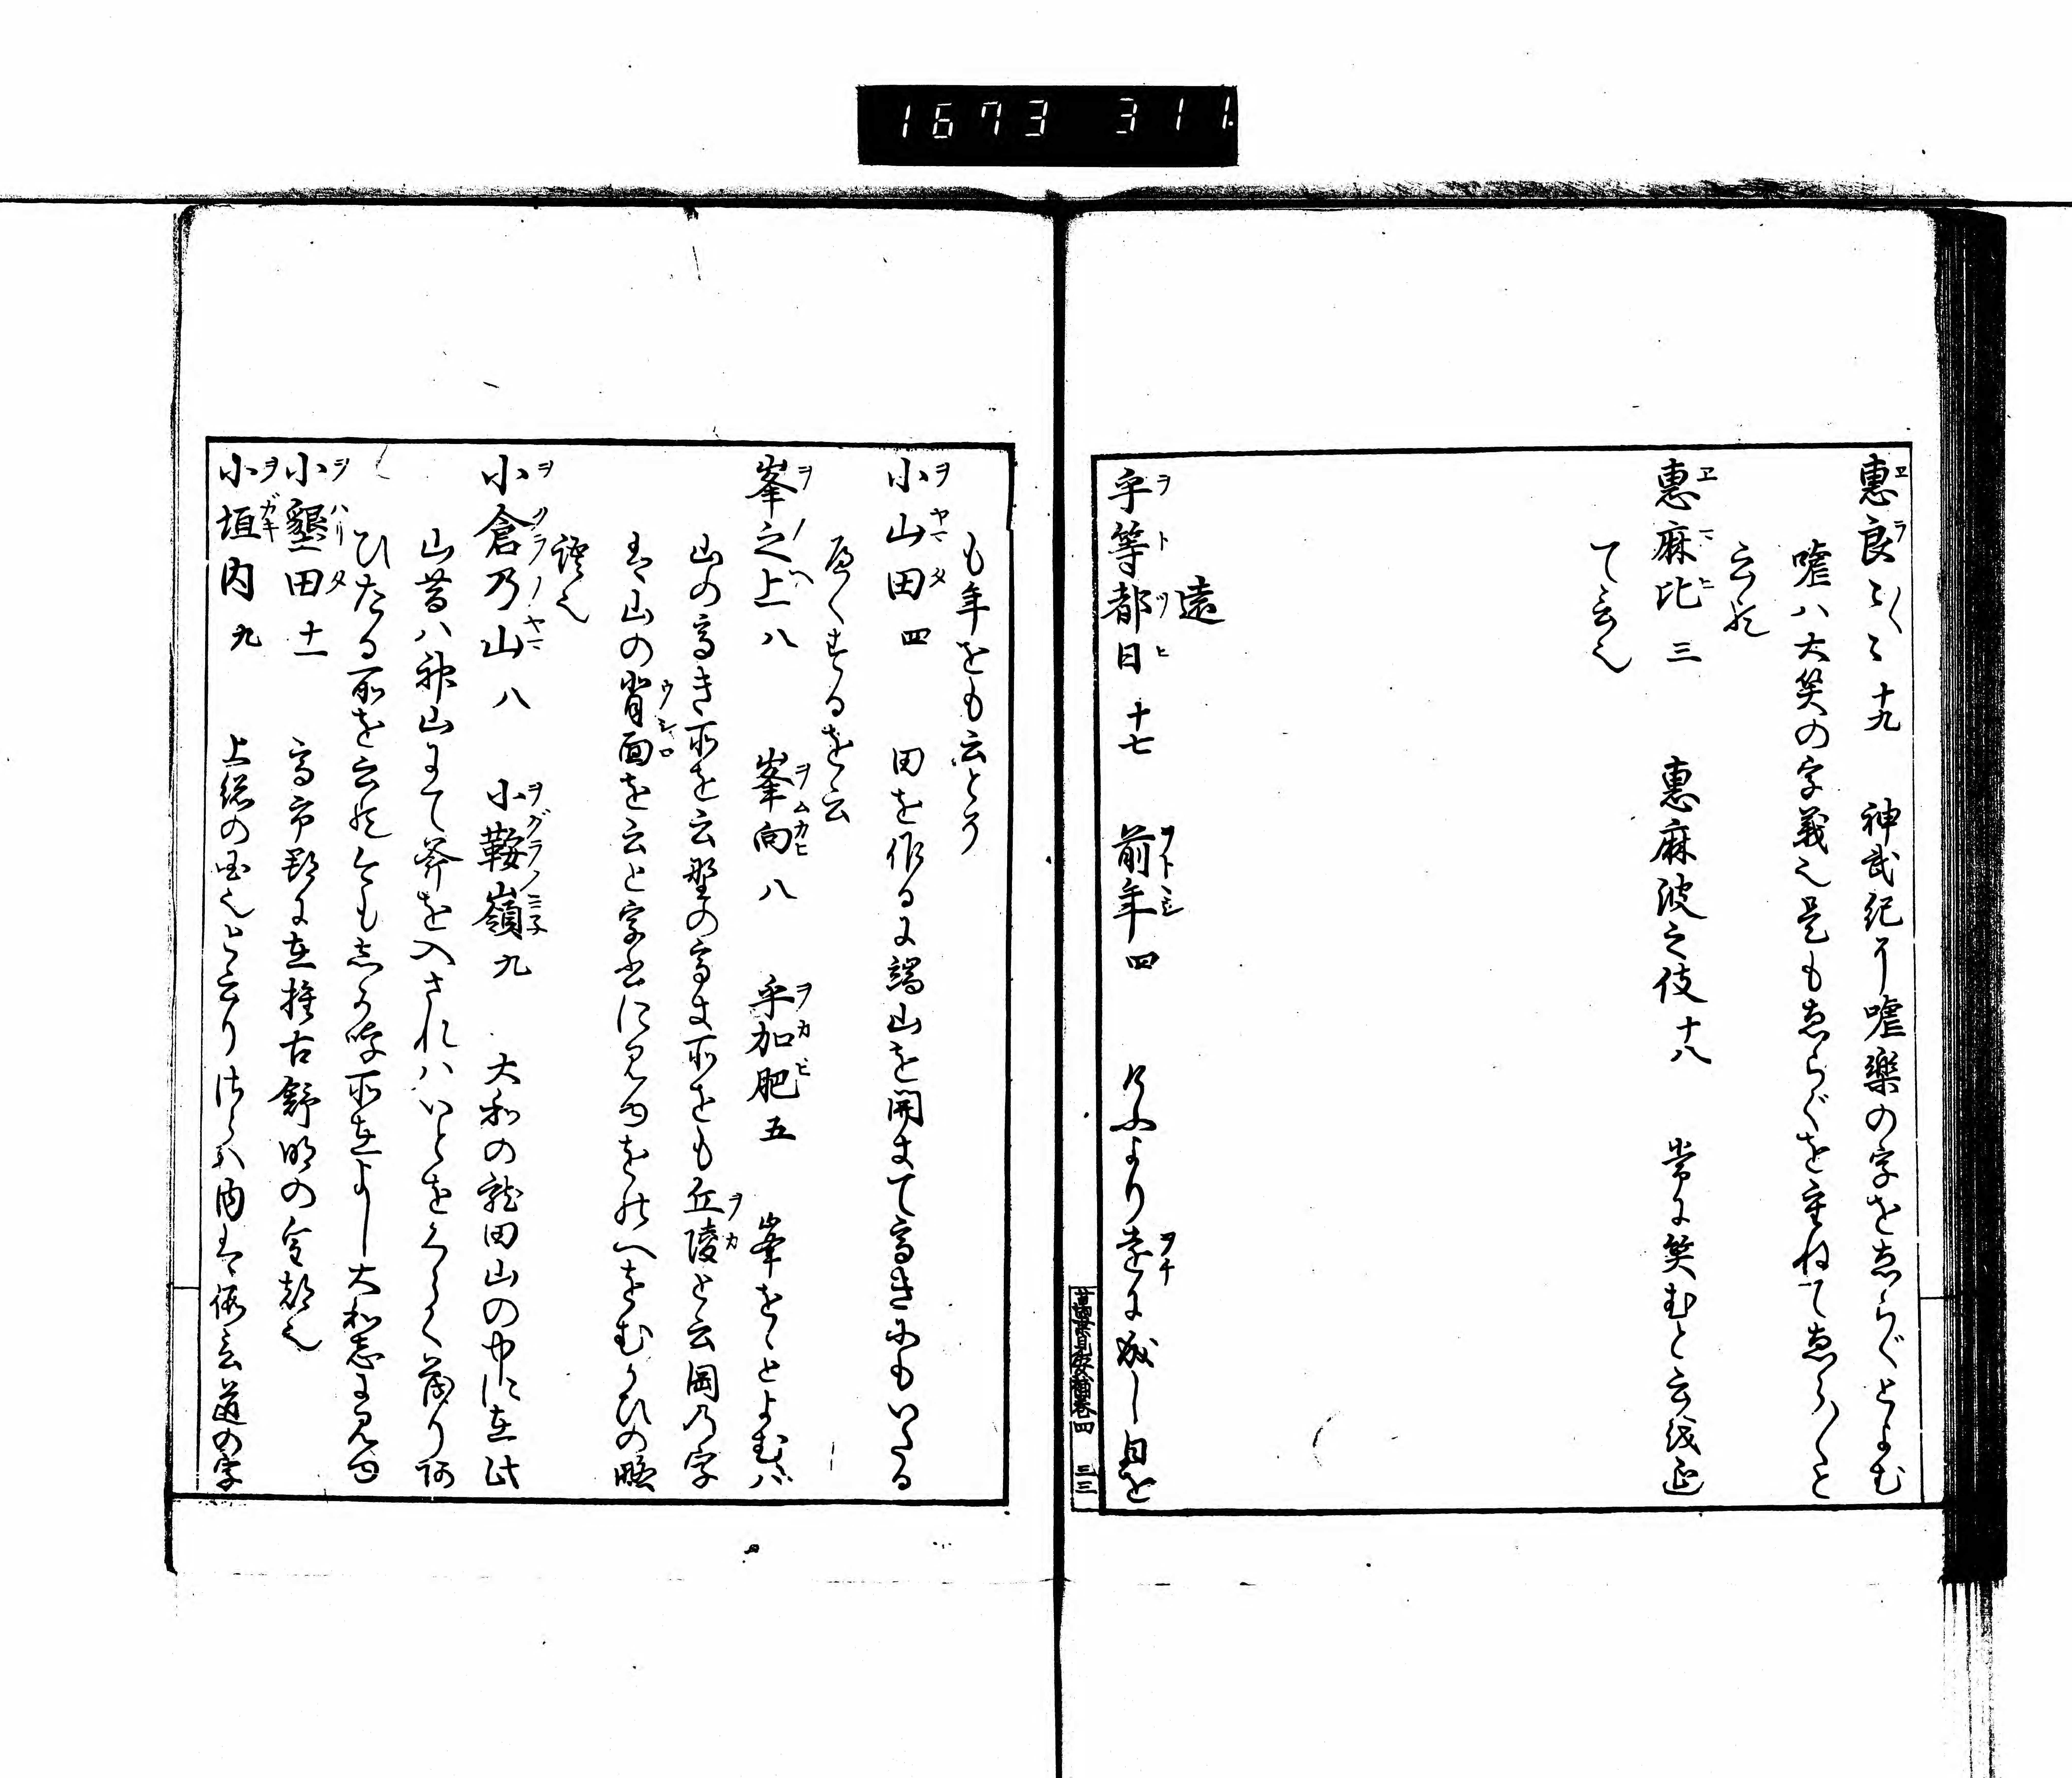 1673 311
惠良〻〻 十九 神武紀ニ嘘樂の字をゑらぐとよむ
嘘ハ大笑の字義也是もゑらぐを重ねてゑら〳〵と
云歟
惠麻比 三 惠麻波之伎 十八 常に笑むと云
て云也
遠
乎等都日 十七 前年 四 けふより遠に成し日を
萬葉見安補卷四 三三
も年をも云とそ
小山田 四 田を作るに端山を開きて高きにもいたる
をも云
峯之上 八 峯向 八 乎加肥 五 峯をゝとよむバ
山の高き所を云野の高き所をも丘陵と云岡乃字
は山の背面を云と字書に見ゆをのへをむかひの略
語也
小倉乃山 八 小鞍嶺 九 大和の龍田山の中に在此
山昔ハ神山にて斧を入されハいとをくらく茂り
ひたる所を云歟今もしか呼所在よし大和志に見ゆ
小墾田 十一 高市郡に在推古舒明の宮都也
小垣内 九 上総の国也と云り